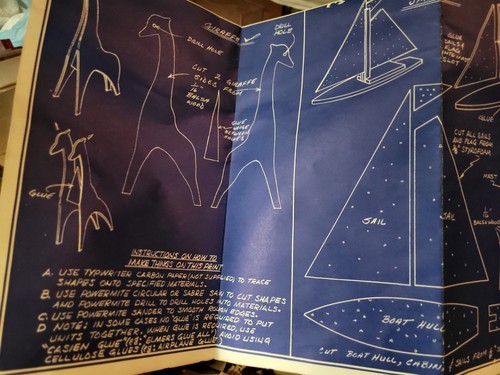 GIRAFFE
DRILL HOLE
DRILL
HOLE
CUT 2 GIRAFFE
SIDES FROM
1/16
BALSA
WOOD
GLUE
BETWEEN
GLUE
INSTRUCTIONS ON HOW TO
MAKE THINGS ON THIS PRINT
A. USE TYPWRITEN CARBON PAPER (NOT SUPPLIED) TO TRACE
SHAPES ONTO SPECIFIED MATERIALS.
B. USE POWERMITE CIRCULAR OR SABRE SAW TO CUT SHAPES
AND POWERMITE DRILL TO DRILL HOLES INTO MATERIALS.
C. USE POWERMITE SANDER TO SMOOTH ROUGH EDGES.
D NOTE: IN SOME CASES NO GLUE IS REQUIRED TO PUT
UNITS TOGETHER. WHEN GLUE IS REQUIRED, USE
"CASIEN GLUE" (eg: "ELMERS GLUE ALL") AVOID USING
CELLULOSE GLUES (eg: AIRPLANE GLUE)
GLUE
SAILS
FLAG
INTO MAST
GLUE
CUT ALL SAILS
AND FLAG FROM
STYROFOAM
MAST
SAIL
SAIL
BOAT HULL
CUT BOAT HULL, CABIN,
SAILS FROM